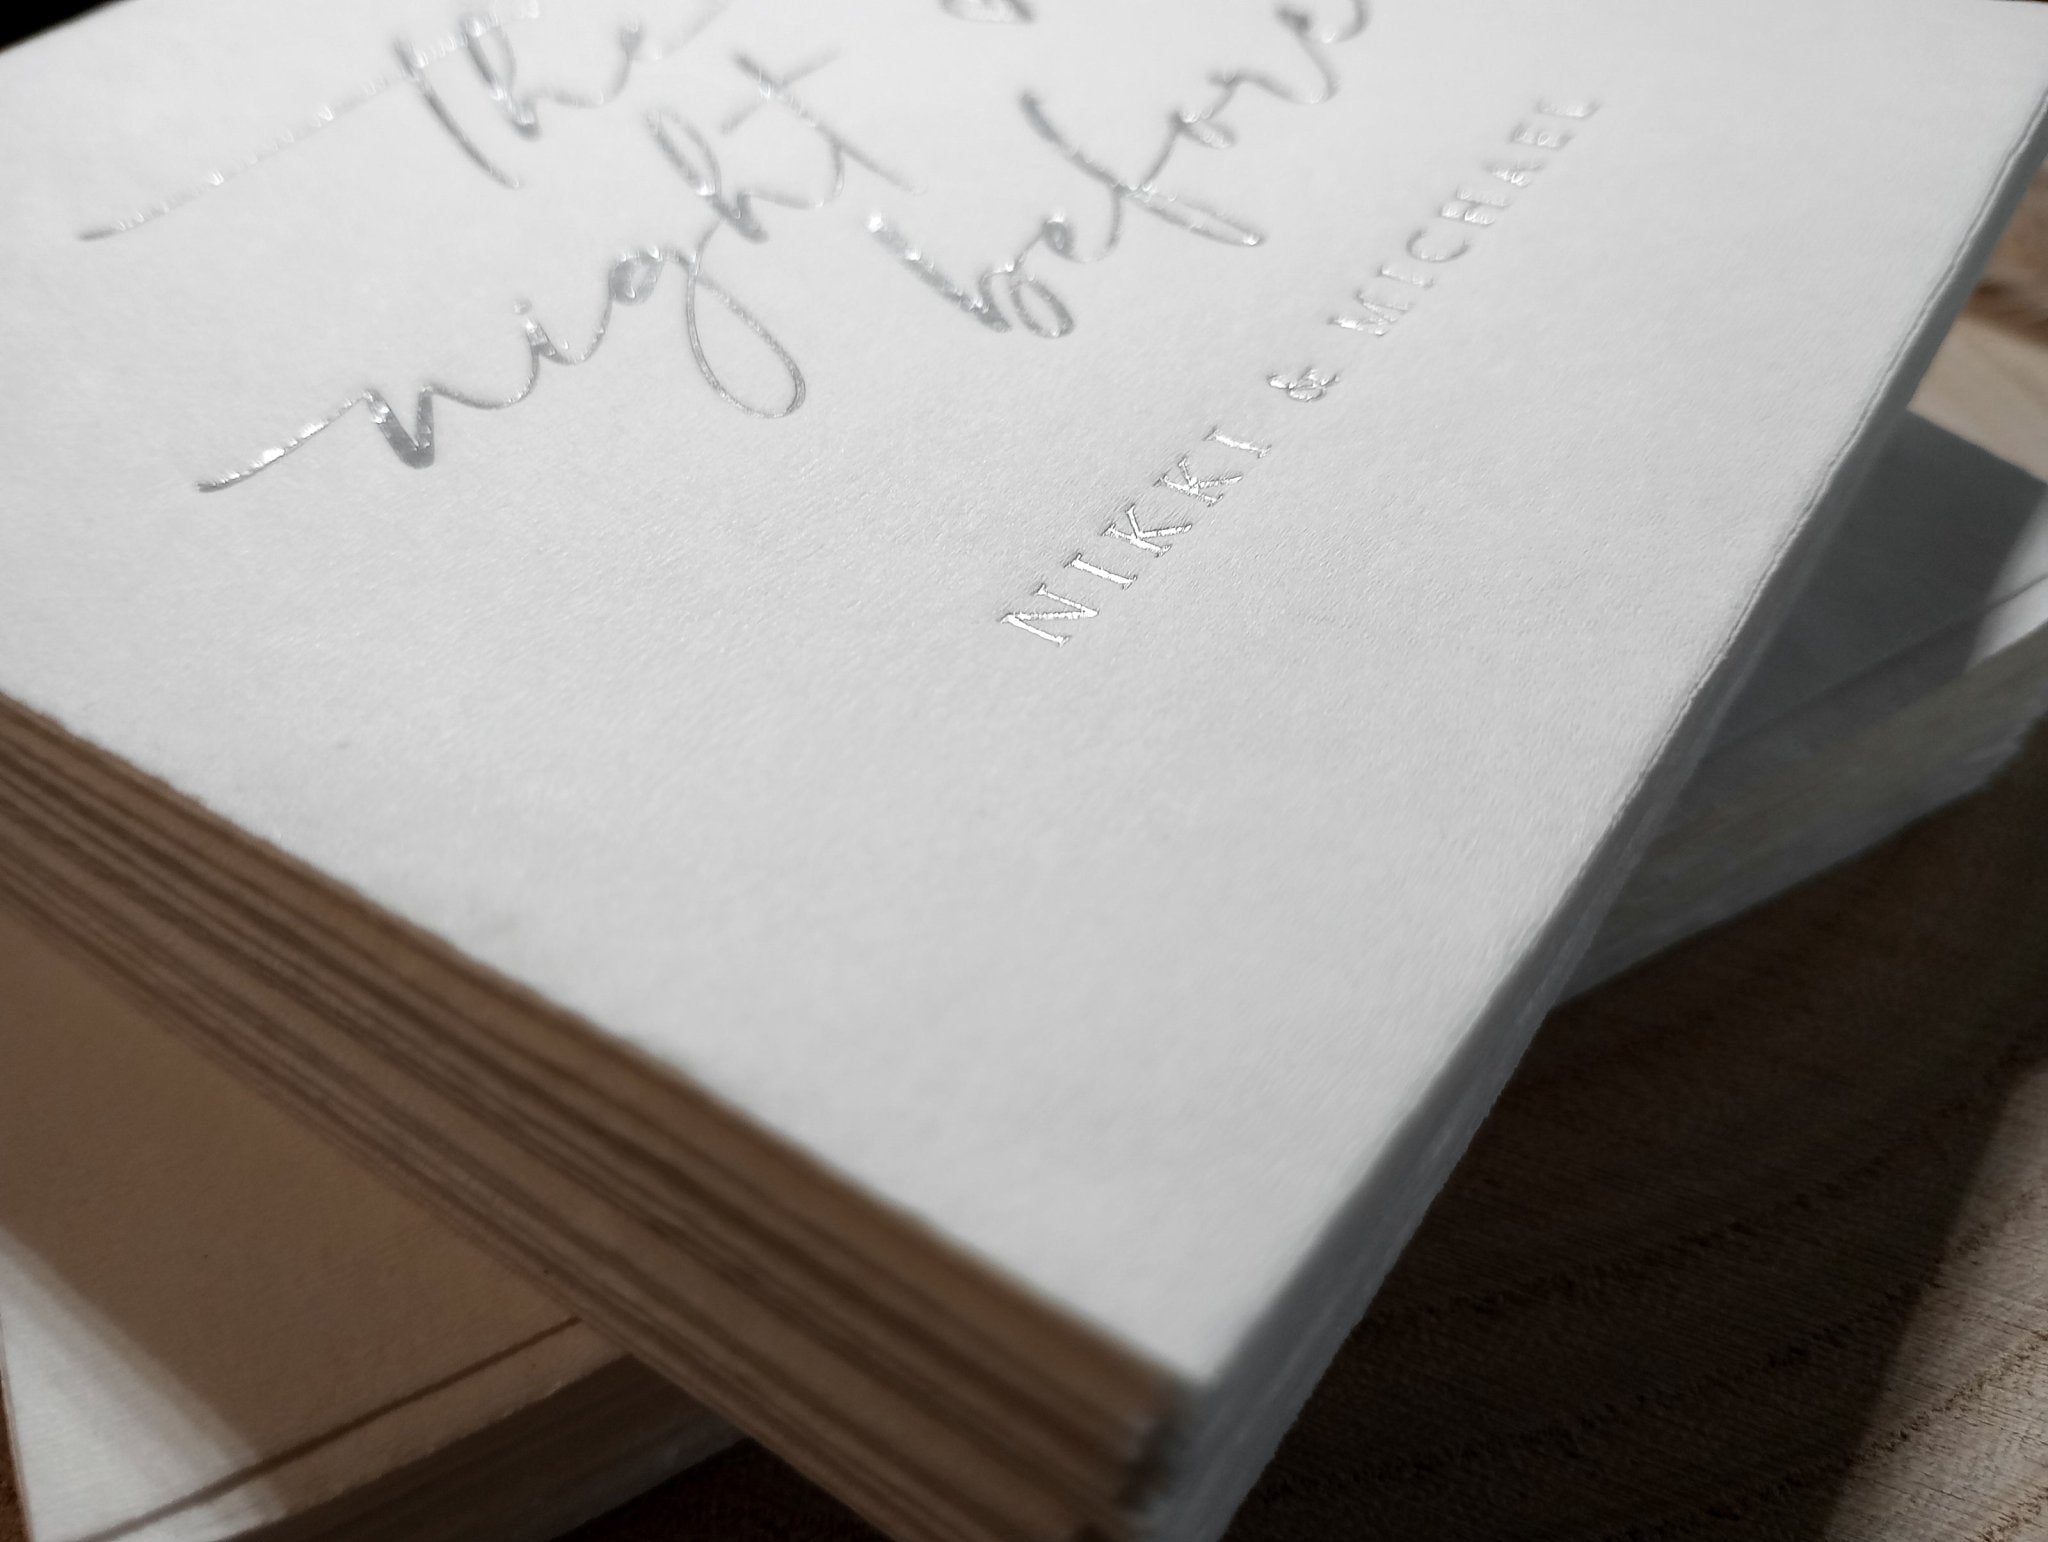 the
night
before
NIKKI & MICHAEL